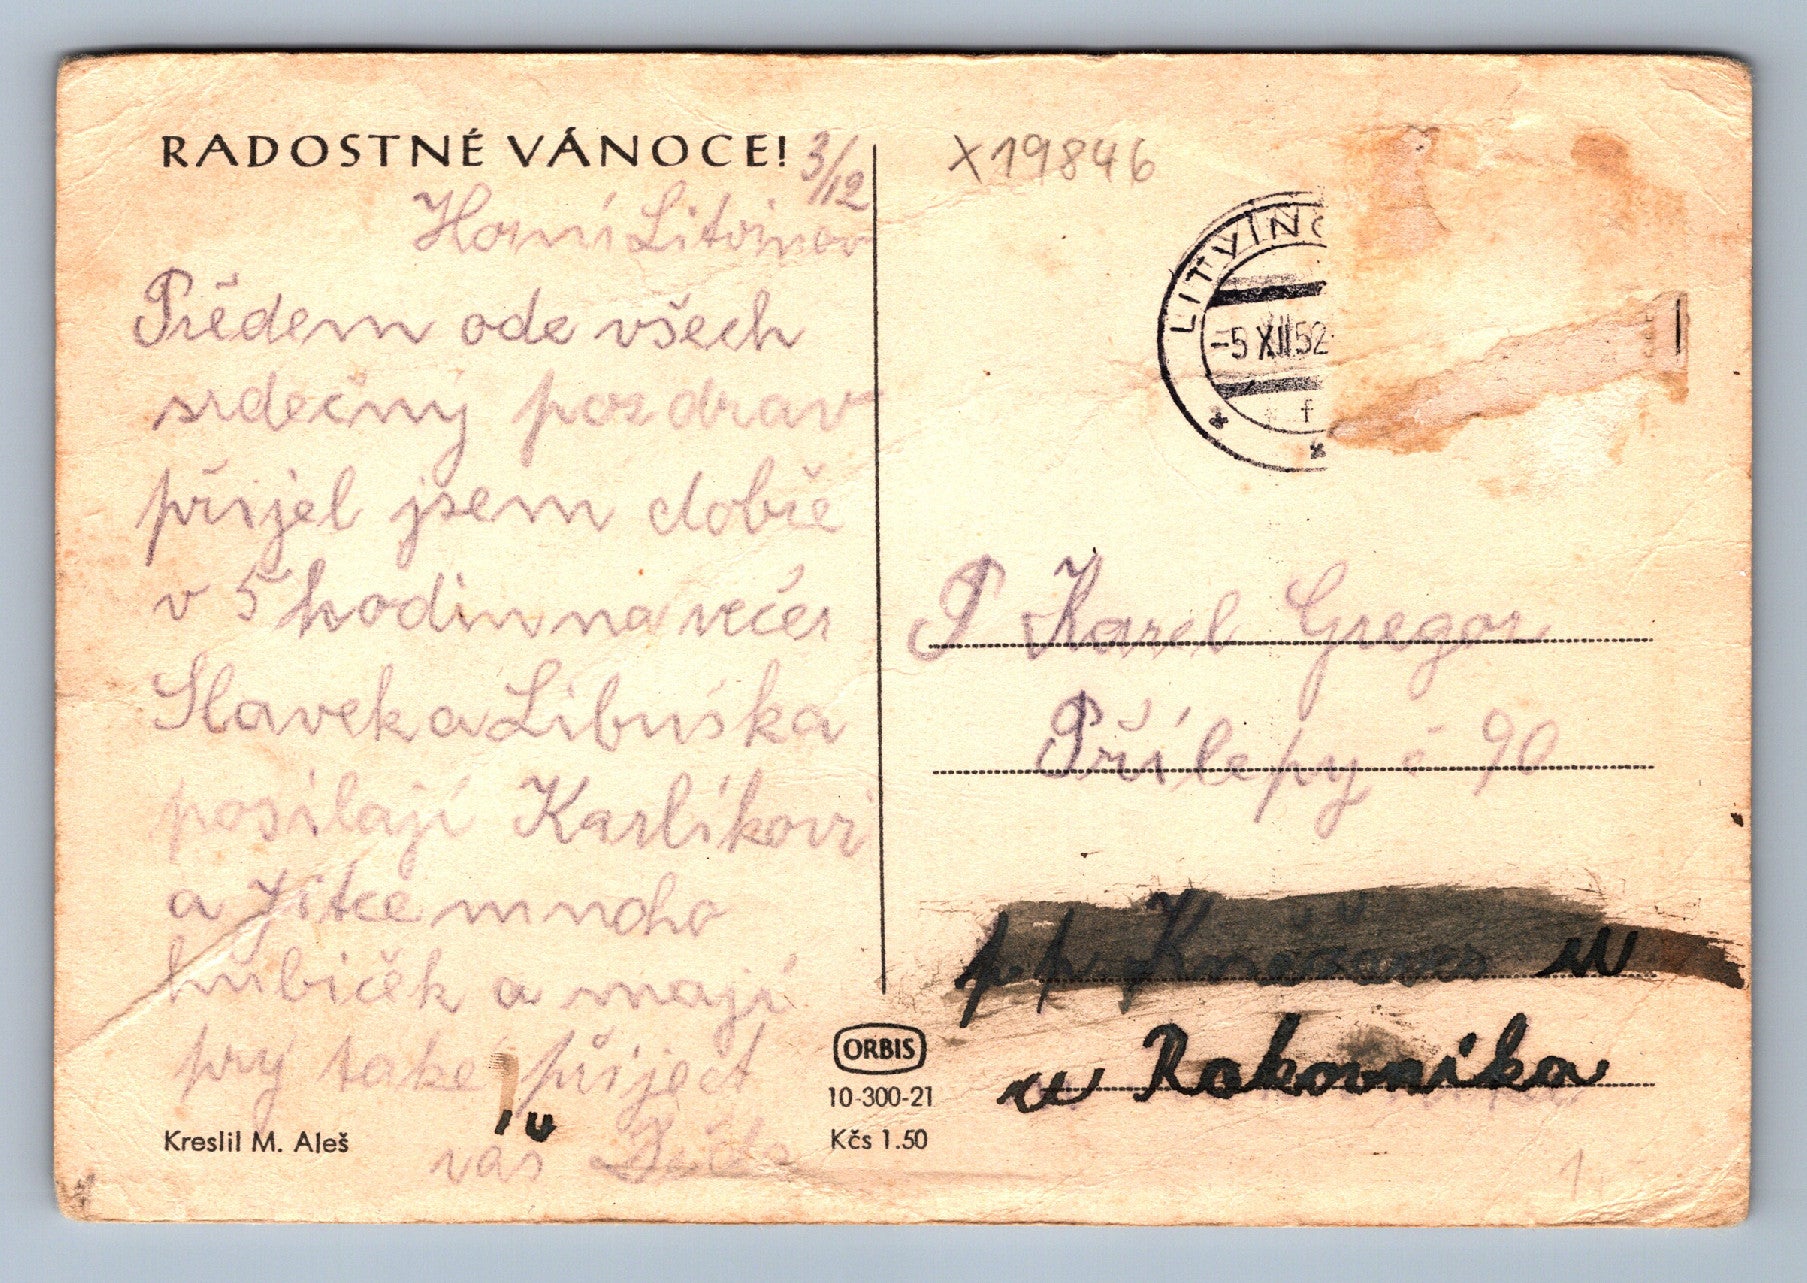 RADOSTNÉ VÁNOCE! 3/12
Horní Litvinov
Předem ode všech
srdečný pozdrav
přijel jsem dobře
v 5 hodin na večer
Slavek a Libuška
posílají Karlíkovi
a Jitce mnoho
hubiček a mají
prý také přiject
váš Děda
Kreslil M. Aleš
ORBIS
10-300-21
Kčs 1.50
X19846
LITVÍNO
-5 XII 52
f
P Karel Gregor
Přílepy č 90
p. p. Kněževes u
u Rakovníka
1